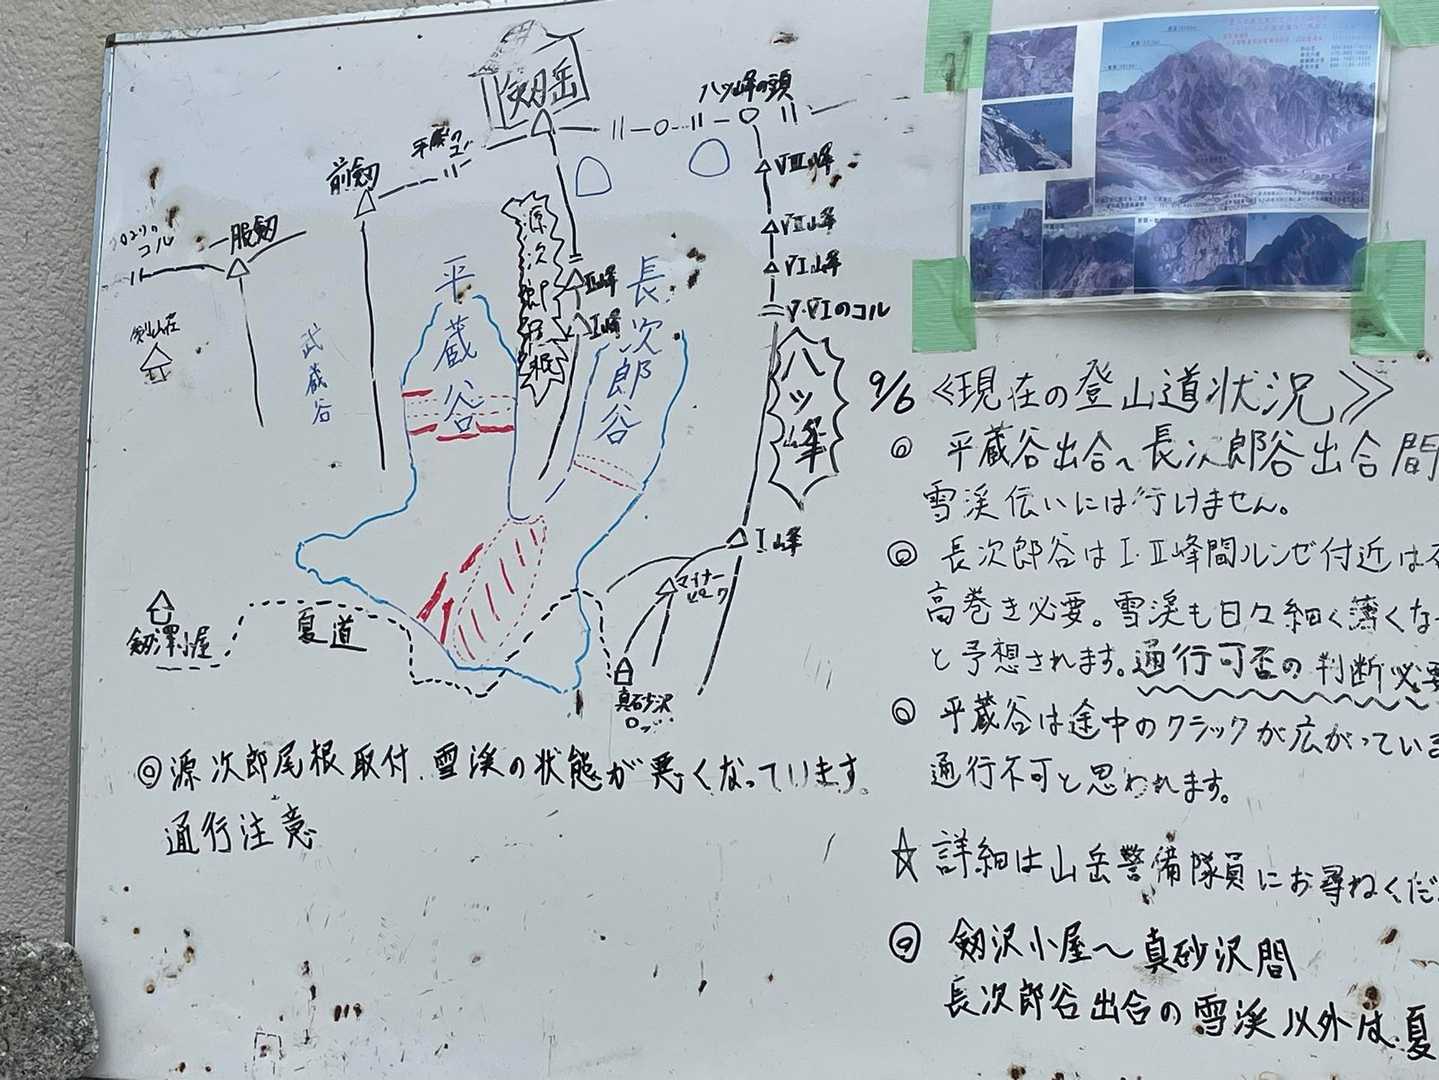 剱岳
八ツ峰の頭
平蔵のコル
前剱
一服剱
コル
剣山荘
武蔵谷
平蔵谷
源次郎尾根
Ⅱ峰
Ⅰ峰
長次郎谷
Ⅷ峰
Ⅶ峰
Ⅵ峰
Ⅴ・Ⅵのコル
八ツ峰
Ⅰ峰
マイナーピーク
剱澤小屋
夏道
真砂沢ロッジ
◎源次郎尾根取付、雪渓の状態が悪くなっています。
通行注意
9/6 ≪現在の登山道状況≫
◎ 平蔵谷出合〜長次郎谷出合間
雪渓伝いには行けません。
◎ 長次郎谷はⅠ・Ⅱ峰間ルンゼ付近は
高巻き必要。雪渓も日々細く薄くな
と予想されます。通行可否の判断必要
◎ 平蔵谷は途中のクラックが広がってい
通行不可と思われます。
☆ 詳細は山岳警備隊員にお尋ねくだ
◎ 剱沢小屋〜真砂沢間
長次郎谷出合の雪渓以外は、夏